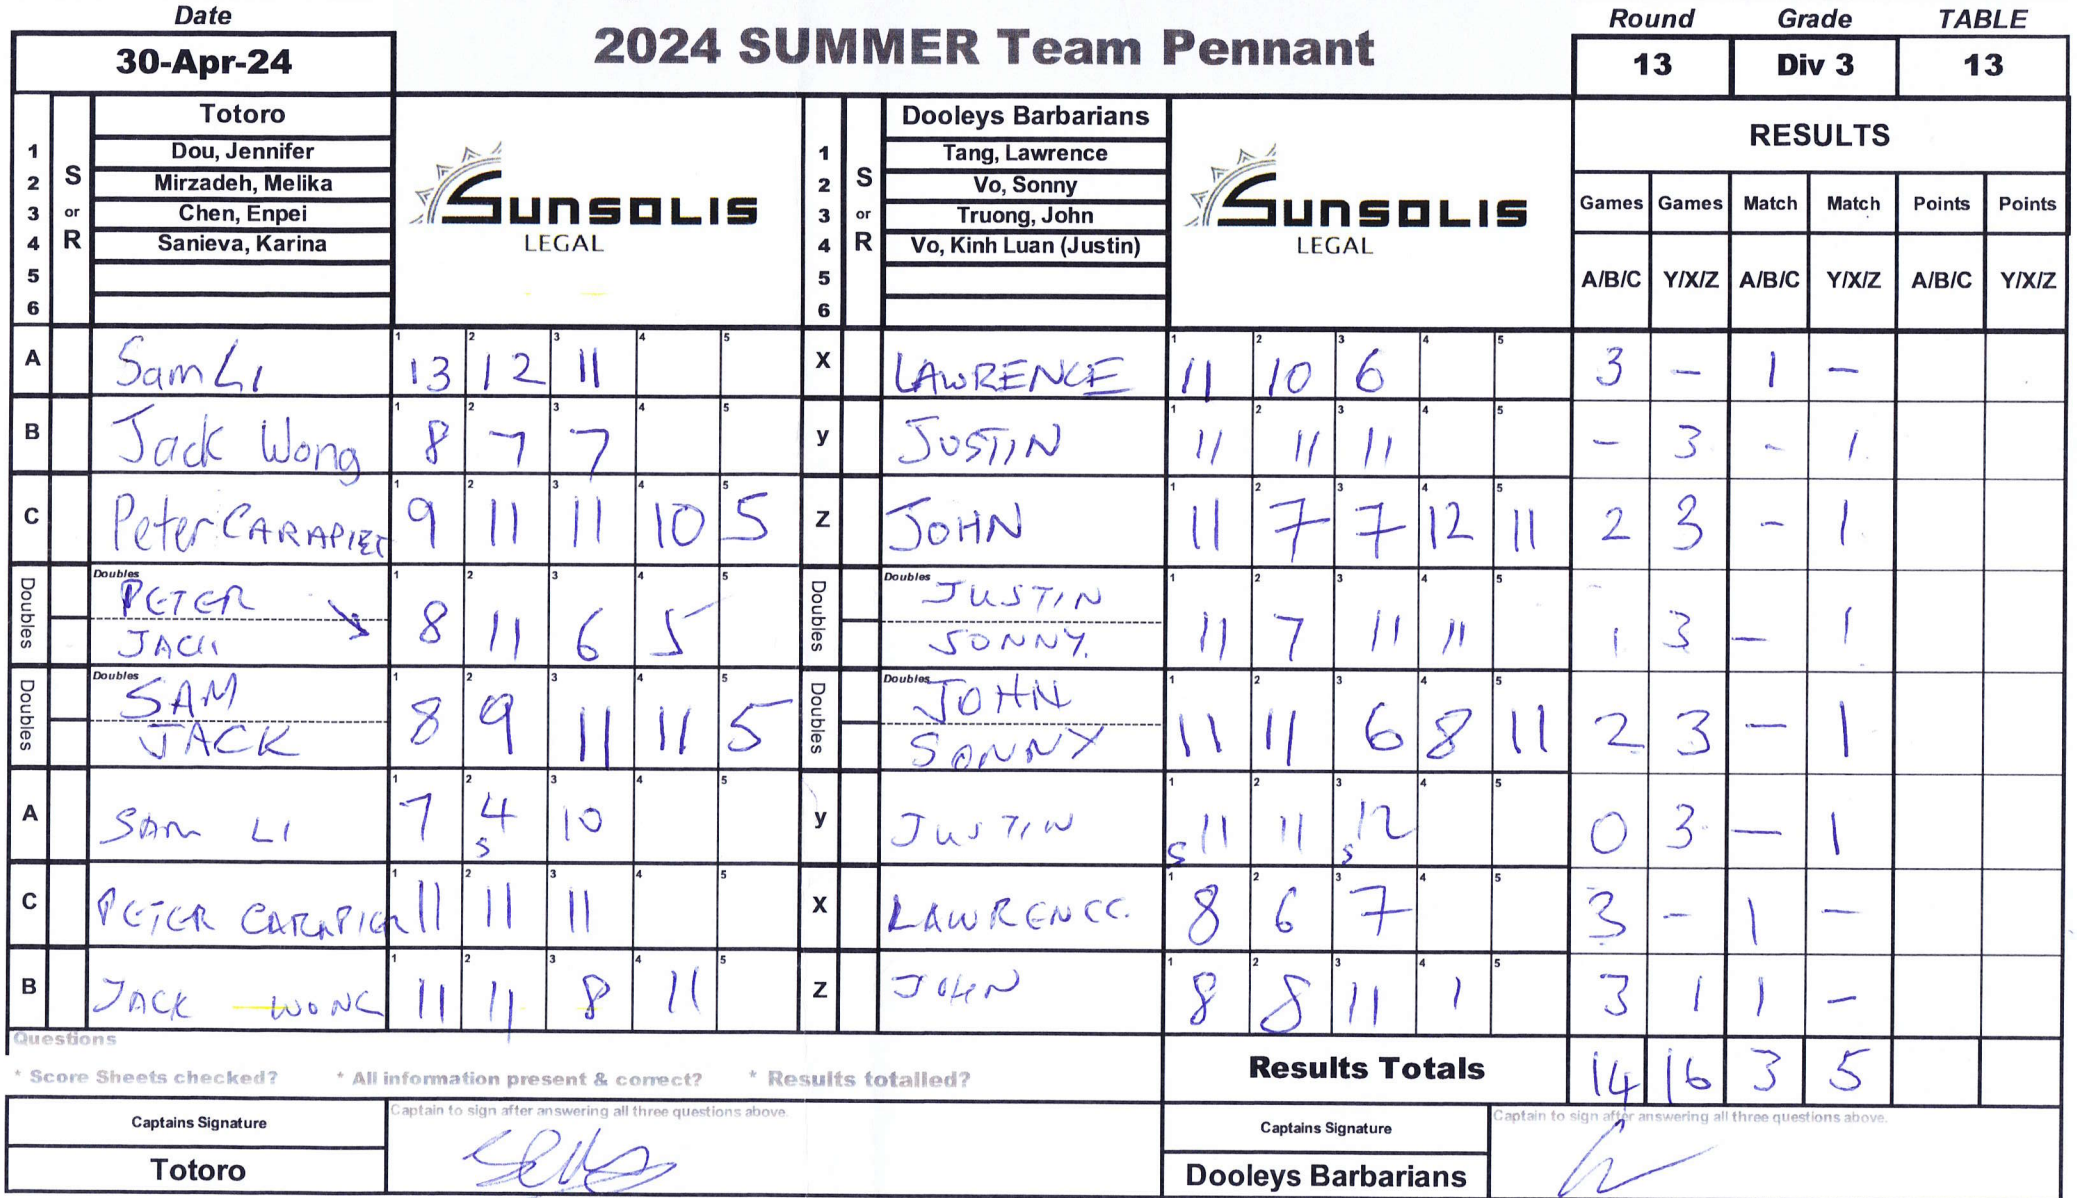 Date
30-Apr-24
2024 SUMMER Team Pennant
Round Grade TABLE
13 Div 3 13
1 2 3 4 5 6
S or R
Totoro
Dou, Jennifer
Mirzadeh, Melika
Chen, Enpei
Sanieva, Karina
SUNSOLIS
LEGAL
1 2 3 4 5 6
S or R
Dooleys Barbarians
Tang, Lawrence
Vo, Sonny
Truong, John
Vo, Kinh Luan (Justin)
SUNSOLIS
LEGAL
RESULTS
Games Games Match Match Points Points
A/B/C Y/X/Z A/B/C Y/X/Z A/B/C Y/X/Z
A Sam Li 1 13 2 12 3 11 4 5 X LAWRENCE 1 11 2 10 3 6 4 5 3 - 1 -
B Jack Wong 1 8 2 7 3 7 4 5 y JUSTIN 1 11 2 11 3 11 4 5 - 3 - 1
C Peter CARAPIET 1 9 2 11 3 11 4 10 5 5 Z JOHN 1 11 2 7 3 7 4 12 5 11 2 3 - 1
Doubles Doubles PETER JACK 1 8 2 11 3 6 4 5 5 Doubles Doubles JUSTIN SONNY. 1 11 2 7 3 11 4 11 5 1 3 - 1
Doubles Doubles SAM JACK 1 8 2 9 3 11 4 11 5 5 Doubles Doubles JOHN SONNY 1 11 2 11 3 6 4 8 5 11 2 3 - 1
A SAM LI 1 7 2 4 s 3 10 4 5 y JUSTIN 1 s 11 2 11 3 s 12 4 5 0 3 - 1
C PETER CARAPIER 1 11 2 11 3 11 4 5 X LAWRENCE. 1 8 2 6 3 7 4 5 3 - 1 -
B JACK WONG 1 11 2 11 3 8 4 11 5 Z JOHN 1 8 2 8 3 11 4 1 5 3 1 1 -
Questions
* Score Sheets checked? * All information present & correct? * Results totalled?
Results Totals 14 16 3 5
Captains Signature
Captain to sign after answering all three questions above.
Totoro
Captains Signature
Captain to sign after answering all three questions above.
Dooleys Barbarians